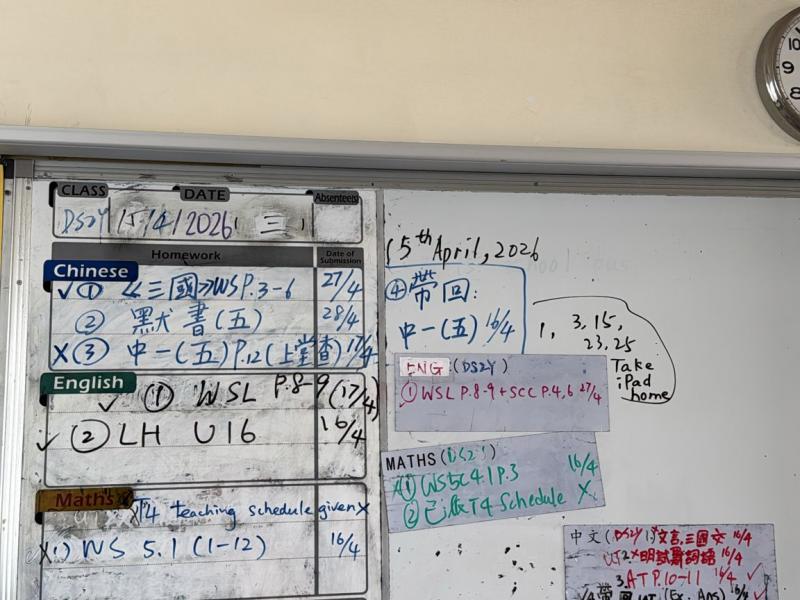 CLASS DATE Absentees
DS2Y 15/4/2026 (三)
Homework Date of Submission
Chinese
✓① 《三國》WS P.3-6 27/4
② 默書(五) 28/4
X③ 中一(五)P.12(上堂查) 17/4
English
✓① WSL P.8-9 (17/4)
✓② LH U16 16/4
Maths
T4 teaching schedule given X
X1) WS 5.1 (1-12) 16/4
15th April, 2026
④ 帶回:
中一(五) 16/4
1, 3, 15,
23, 25
Take
iPad
home
ENG (DS2Y)
① WSL P.8-9 + SCC P.4,6 27/4
MATHS
① WS5C4.1P.3 16/4
② 已派T4 Schedule X
中文(DS2Y) 文言,三國交 16/4
16/4
3. ATP.10-11 16/4 ✓
(Ex, Ans) 16/4
10
9
8